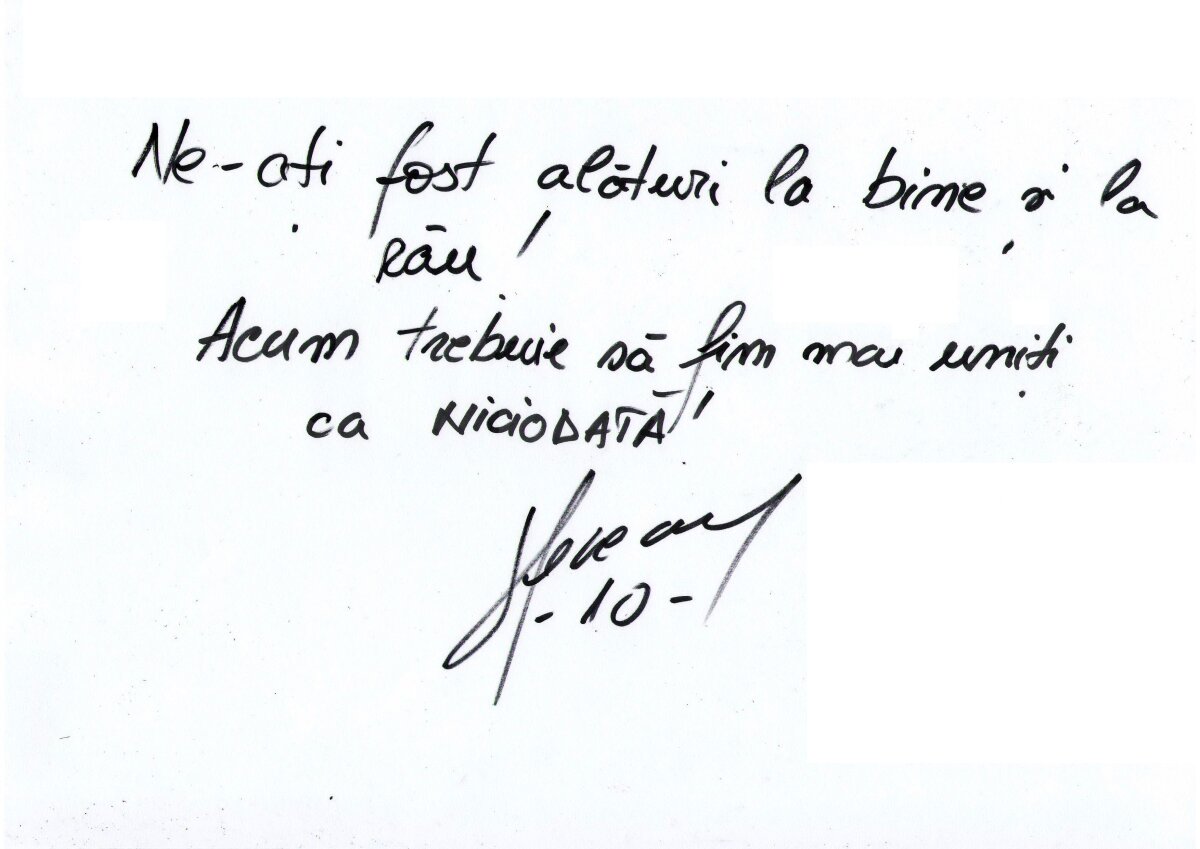 Ne-ați fost alături la bine și la
rău!
Acum trebuie să fim mai uniți
ca NICIODATĂ!
-10-